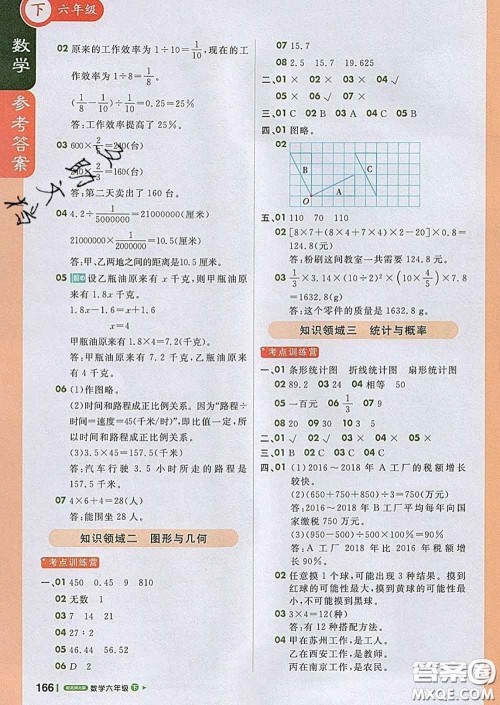 下 六年级
数学
参考答案
02 原来的工作效率为 1÷10=1/10,现在的工
作效率为 1÷8=1/8。
(1/8-1/10)÷1/10=0.25=25%
答:工作效率提高了 25%。
03 600×2/5=240(台)
240×2/3=160(台)
答:第二天卖出了 160 台。
04 4.2÷1/5000000=21000000(厘米)
21000000×1/2000000=10.5(厘米)
答:甲、乙两地之间的距离是 10.5 厘米。
05 设乙瓶油原来有 x 千克,则甲瓶油原
来有 1.8x 千克。
1.8x-1.6=x+1.6
x=4
甲瓶油原来有 1.8×4=7.2(千克)
答:甲瓶油原来有 7.2 千克,乙瓶油原
来有 4 千克。
06 (1)作图略。
(2)时间和路程成正比例关系。因为“路程÷
时间=速度=45(千米/时)”,即比值一定,所
以时间和路程成正比例关系。
(3)3.5×45=157.5(千米)
答:汽车行驶 3.5 小时所走的路程是
157.5 千米。
07 4×6+4=28(人)
答:能围坐 28 人。
知识领域二 图形与几何
考点训练营
一、01 450 0.45 9 810
02 无数 1
03 7 14 21
04 27∶2
05 46.44 56.52
06 D 2
07 15.7
08 2.5 15.7 19.625
二、01 ✓ 02 × 03 × 04 ✓
05 × 06 × 07 ✓
三、01 C 02 C 03 B 04 C 05 C
四、01 图略。
02
B A C
O
五、01 110 70 110
02 [8×7+(8×4+7×4)×2-23.2]×0.8=124.8(千克)
答:粉刷这间教室一共需要 124.8 千克。
03 1/3×3.14×(10÷2)²×(10×4/5)×7.8=1632.8(g)
答:这个零件的质量是 1632.8g。
知识领域三 统计与概率
考点训练营
一、01 条形统计图 折线统计图 扇形统计图
02 89.2 03 24 04 相等 50
05 一百元 06 1/3 07 9
08 20 09 30 10 90
二、01 × 02 × 03 ✓ 04 ✓ 05 ×
三、01 C 02 B 03 A 04 C 05 C
四、01 (1)2016～2018 年 A 工厂的税额增长
较快。
(2)(650+750+850)÷3=750(万元)
答:2016～2018 年 B 工厂平均每年向国
家缴税 750 万元。
答:A 工厂 2018 年的税额比 2017 年增
长约 16.9%。
02 任意摸 1 个球,可能出现 3 种结果。摸到
红球的可能性最大,摸到黄球的可能性最
小,摸到蓝球的可能性居中。
03 3×4=12(种)
答:有 12 种搭配方法。
04 甲在苏州工作,是工人。
乙在西安工作,是教师。
丙在南京工作,是律师。
166 数学六年级 下
答案圈
MXQE.COM